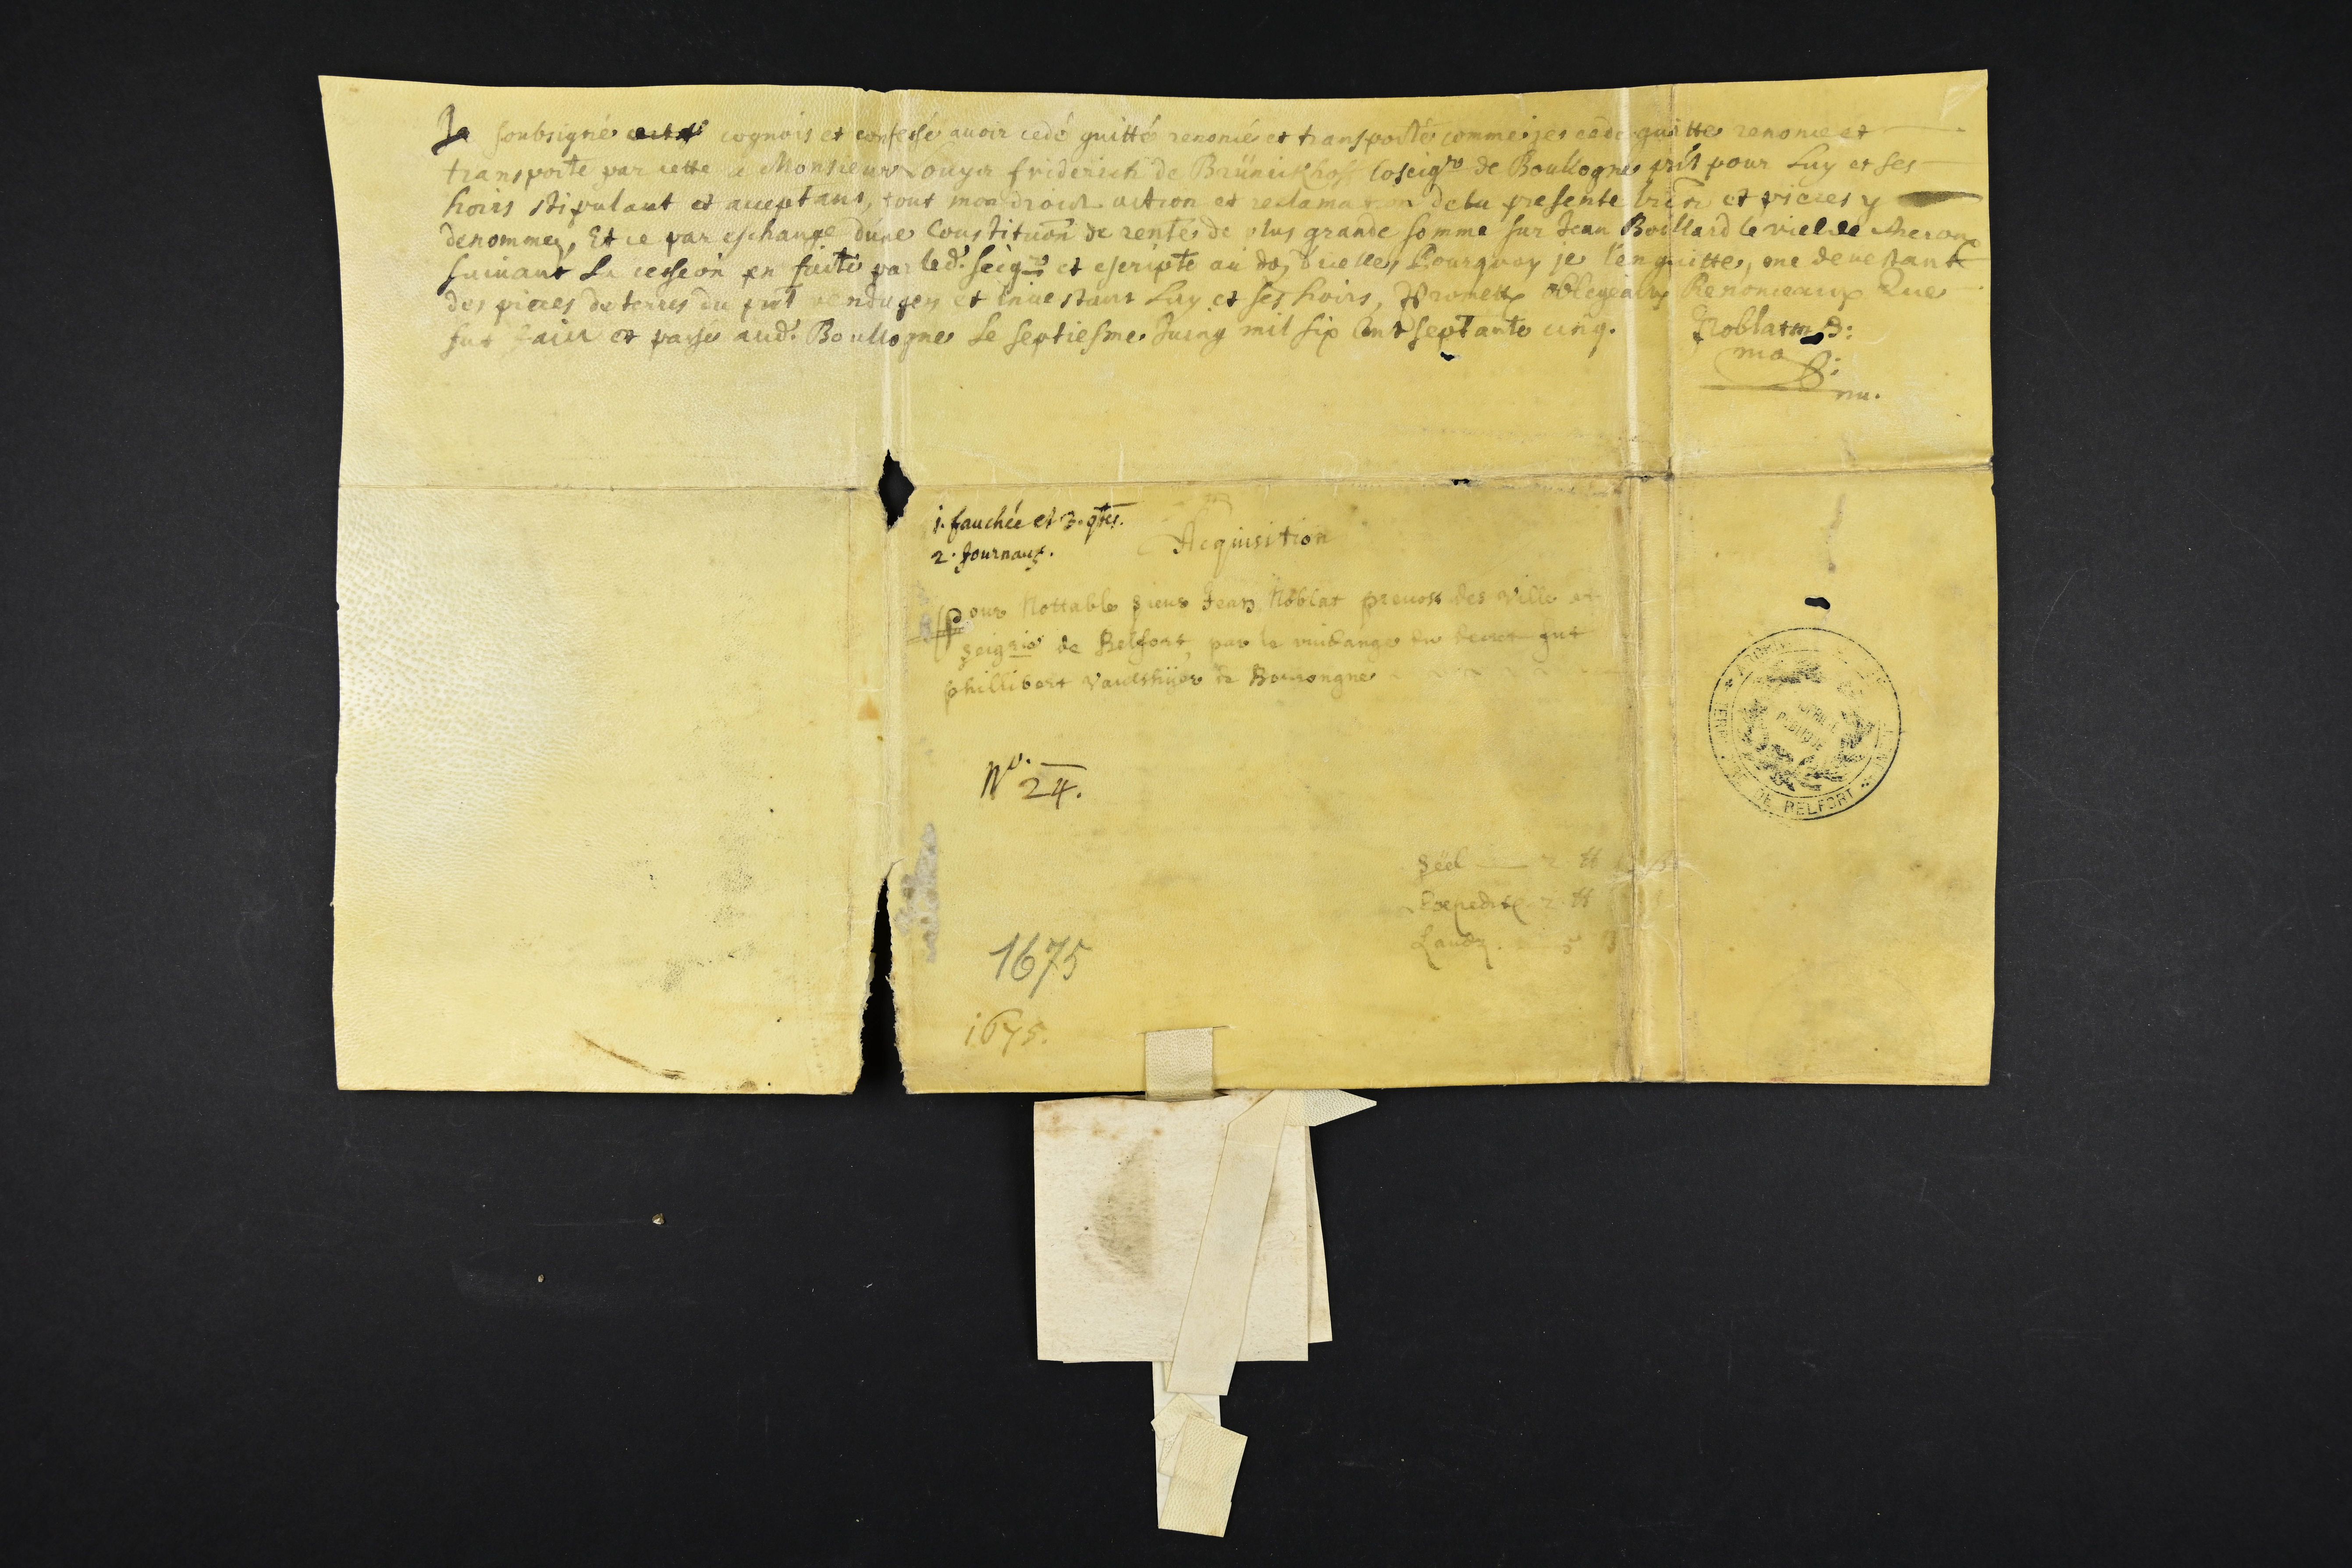 Je soubsigné cognois et confessé auoir cedé quitté renoncé et transporté comme je cede quitte renonce et
transporte par cette a Monsieur Louys friderich de Brünickhoff coseigr de Boullogne pnt pour Luy et ses
hoirs stipulant et acceptans, tout mon droict action et reclamation de la presente lr̃e et pieces y
denommez, Et ce par eschange d'une Constituõn de rente de plus grande somme sur Jean Boillard le viel de
suiuant La cession en faite par led. seigr et escripte au dos d'icelle, Pourquoy je l'en quitte, me deuestant
des pieces de terres du pnt vendages et Inuestant Luy et ses hoirs, Promett obligeant Renonceant Que
fut faict et passé aud. Boullogne Le septiesme Juing mil six Cent septante cinq. Noblat
ma
1. fauchée et 3. qtes.
2. Journaux.
Acquisition
Pour Nottable sieur Jean Noblat preuost des ville et
seigrie de Belfort, par la vuidange du decret fut
Phillibert de Bourongne
No. 24.
Séel 2 tt
Expedit 2 tt
Laudz. 5
1675
1675.
DE BELFORT